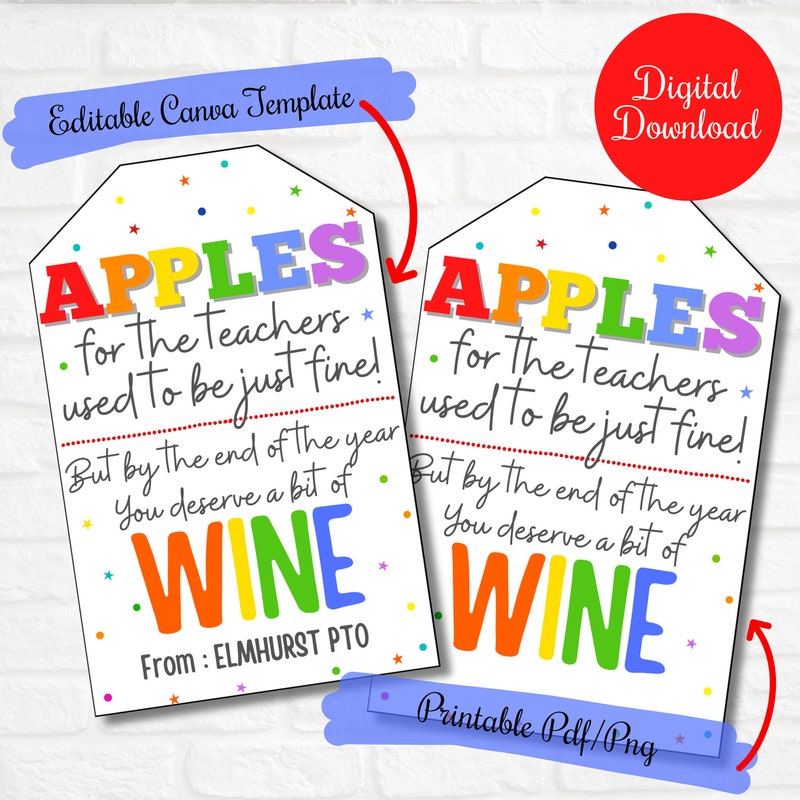 Editable Canva Template
Digital
Download
APPLES
for the teachers
used to be just fine!
But by the end of the year
You deserve a bit of
WINE
From : ELMHURST PTO
APPLES
for the teachers
used to be just fine!
But by the end of the year
You deserve a bit of
WINE
Printable Pdf/Png